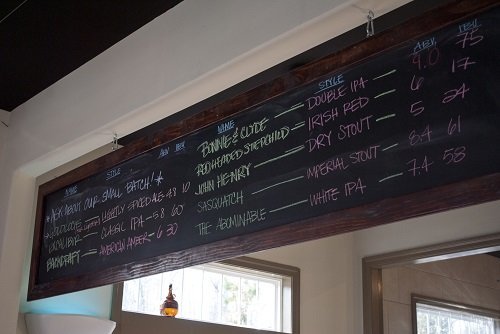 NAME STYLE ABV IBU
*ASK ABOUT OUR SMALL BATCH!*
LIGHTLY SPICED ALE 4.8 10
EXCALIBUR CLASSIC IPA 5.8 60
BACKDRAFT AMERICAN AMBER 6 30
NAME STYLE ABV. IBU.
BONNIE & CLYDE DOUBLE IPA 9.0 75
REDHEADED STEPCHILD IRISH RED 6 17
JOHN HENRY DRY STOUT 5 24
SASQUATCH IMPERIAL STOUT 8.4 61
THE ABOMINABLE WHITE IPA 7.4 58